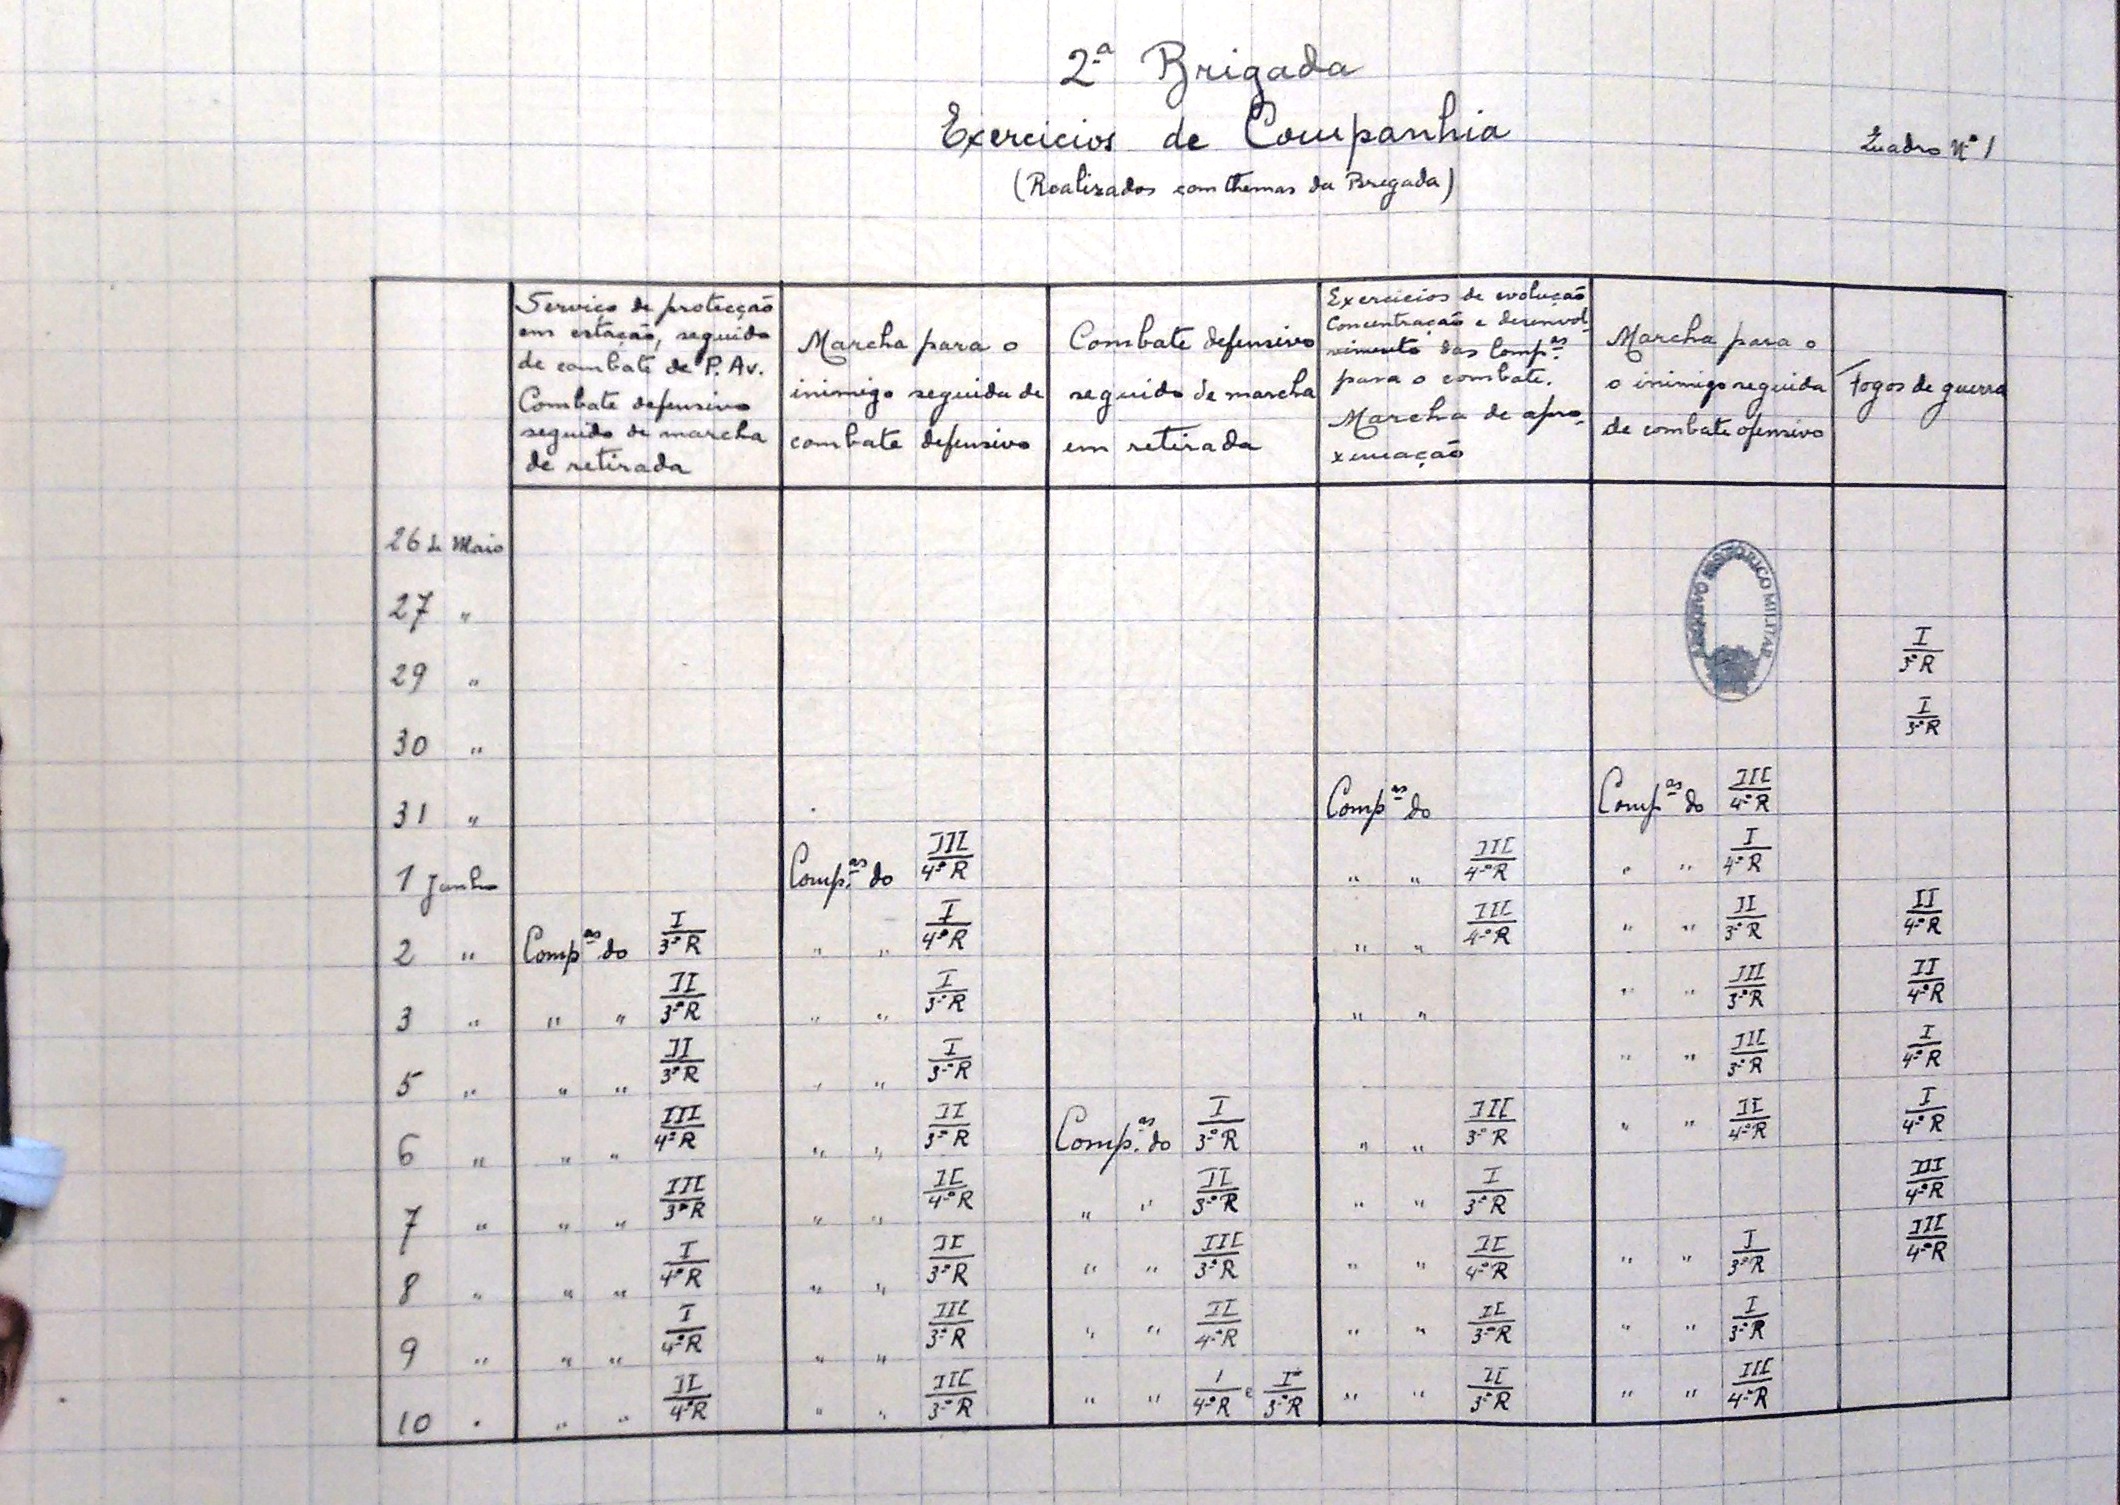 2ª Brigada
Exercicios de Companhia
Quadro Nº 1
(Realizados com themas da Brigada)
Serviço de protecção
em estação, seguido
de combate de P. Av.
Combate defensivo
seguido de marcha
de retirada
Marcha para o
inimigo seguida de
combate defensivo
Combate defensivo
seguido de marcha
em retirada
Exercicios de evolução
concentração e desenvol-
vimento das Comp.as
para o combate.
Marcha de apro-
ximação
Marcha para o
o inimigo seguida
de combate ofensivo
Fogos de guerra
ARQUIVO HISTÓRICO MILITAR
26 de Maio
27 "
29 " I/3º R
30 " I/3º R
31 " Comp.as do Comp.as do III/4º R
1 Junho Comp.as do III/4º R " " III/4º R " " I/4º R
2 " Comp.as do I/3º R " " I/4º R " " III/4º R " " II/3º R II/4º R
3 " " " II/3º R " " I/3º R " " " " III/3º R II/4º R
5 " " " II/3º R " " I/3º R " " III/3º R I/4º R
6 " " " III/4º R " " II/3º R Comp.as do I/3º R " " III/3º R " " II/4º R I/4º R
7 " " " III/3º R " " II/4º R " " II/3º R " " I/3º R III/4º R
8 " " " I/4º R " " II/3º R " " III/3º R " " II/4º R " " I/3º R III/4º R
9 " " " I/4º R " " III/3º R " " II/4º R " " II/3º R " " I/3º R
10 " " " II/4º R " " III/3º R " " I/4º R e I/3º R " " II/3º R " " III/4º R